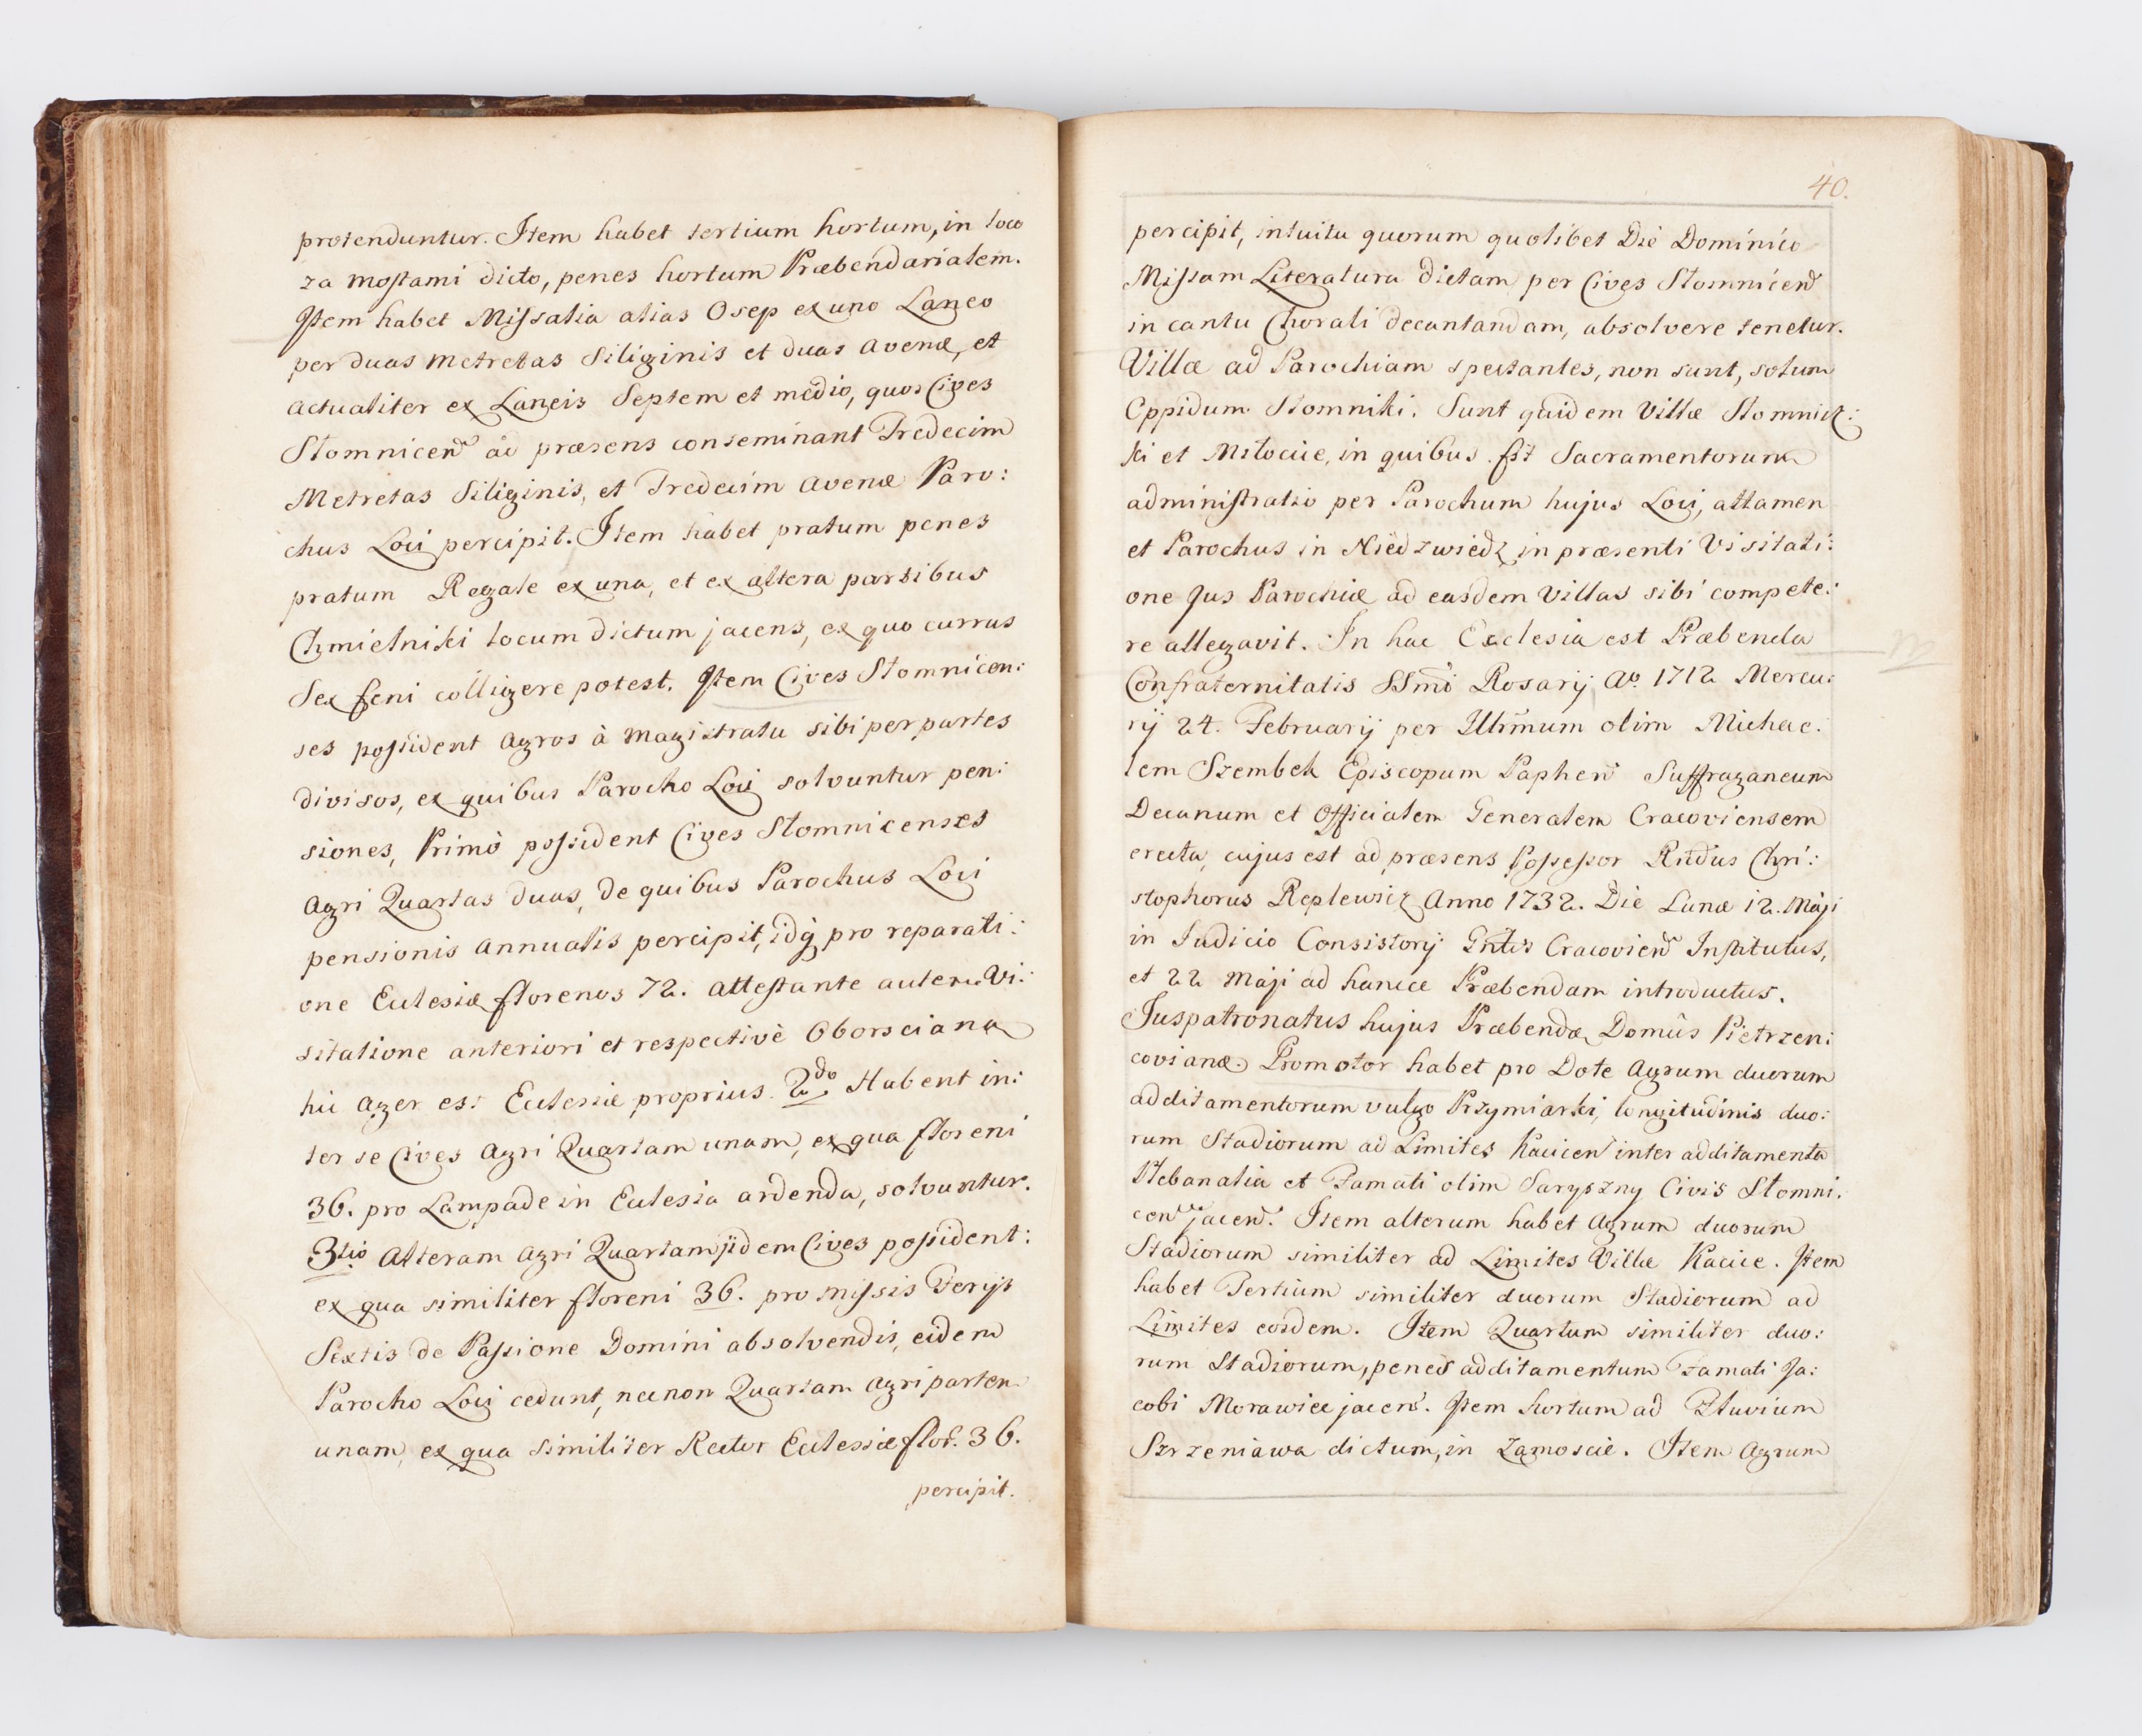 protenduntur. Item habet tertium hortum, in loco
za mostami dicto, penes hortum Præbendarialem.
Item habet Missalia alias Osep ex uno Laneo
per duas metretas Siliginis et duas avenæ, et
actualiter ex Laneis Septem et medio, quos Cives
Słomnicen̄ ad præsens conseminant Tredecim
Metretas Siliginis, et Tredecim avenæ Paro:
chus Loci percipit. Item habet pratum penes
pratum Regale ex una, et ex altera partibus
Chmielniki locum dictum jacens, ex quo currus
Sex feni colligere potest. Item Cives Słomnicen:
ses possident agros à magistratu sibi per partes
divisos, ex quibus Parocho Loci solvuntur pen:
siones, Primò possident Cives Słomnicenses
agri Quartas duas, de quibus Parochus Loci
pensionis annualis percipit, idq pro reparati:
one Ecclesiæ florenos 72. attestante autem Vi:
sitatione anteriori et respectivè Oborsciana
hic ager est Ecclesiæ proprius. 2do Habent in:
ter se Cives agri Quartam unam, ex qua floreni
36. pro Lampade in Ecclesia ardenda, solvuntur.
3tio Alteram agri Quartam ijdem Cives possident:
ex qua similiter floreni 36. pro missis Ferijs
Sextis de Passione Domini absolvendis, eidem
Parocho Loci cedunt, necnon Quartam agri partem
unam, ex qua similiter Rector Ecclesiæ flor. 36.
percipit.
40.
percipit, intuitu quorum quolibet Die Dominico
Missam Literatura dictam per Cives Słomnicen̄
in cantu Chorali decantandam, absolvere tenetur.
Villæ ad Parochiam spectantes, non sunt, solum
Oppidum Słomniki. Sunt quidem Villæ Słomnicz:
ki et Miłocice, in quibus fit Sacramentorum
administratio per Parochum hujus Loci, attamen
et Parochus in Niedzwiedz in præsenti Visitati:
one Jus Parochiæ ad easdem Villas sibi compete:
re allegavit. In hac Ecclesia est Præbenda
Confraternitatis SSmi Rosarij Ao 1712 Mercu:
rij 24. Februarij per Illr̄mum olim Michae:
lem Szembek Episcopum Paphen̄ Suffraganeum
Decanum et Officialem Generalem Cracoviensem
erecta, cujus est ad præsens Possessor Rn̄dus Chri:
stophorus Replewicz Anno 1732. Die Lunæ 12. Maji
in Judicio Consistorij Gn̄lis Cracovien̄ Institutus,
et 22 Maji ad hancce Præbendam introductus.
Juspatronatus hujus Præbendæ, Domûs Pietrzeni
covianæ. Promotor habet pro Dote Agrum duorum
additamentorum vulgo Przymiarki, longitudinis duo:
rum Stadiorum ad Limites Kacicen̄ inter additamenta
Plebanalia et Famati olim Saryszny Civis Słomni.
cen̄ jacen̄. Item alterum habet Agrum duorum
Stadiorum similiter ad Limites Villæ Kacice. Item
habet Tertium similiter duorum Stadiorum ad
Limites eosdem. Item Quartum similiter duo:
rum Stadiorum, penes additamentum Famati Ja:
cobi Morawiec jacen̄. Item hortum ad Fluvium
Szrzeniawa dictum, in Zamoscie. Item Agrum